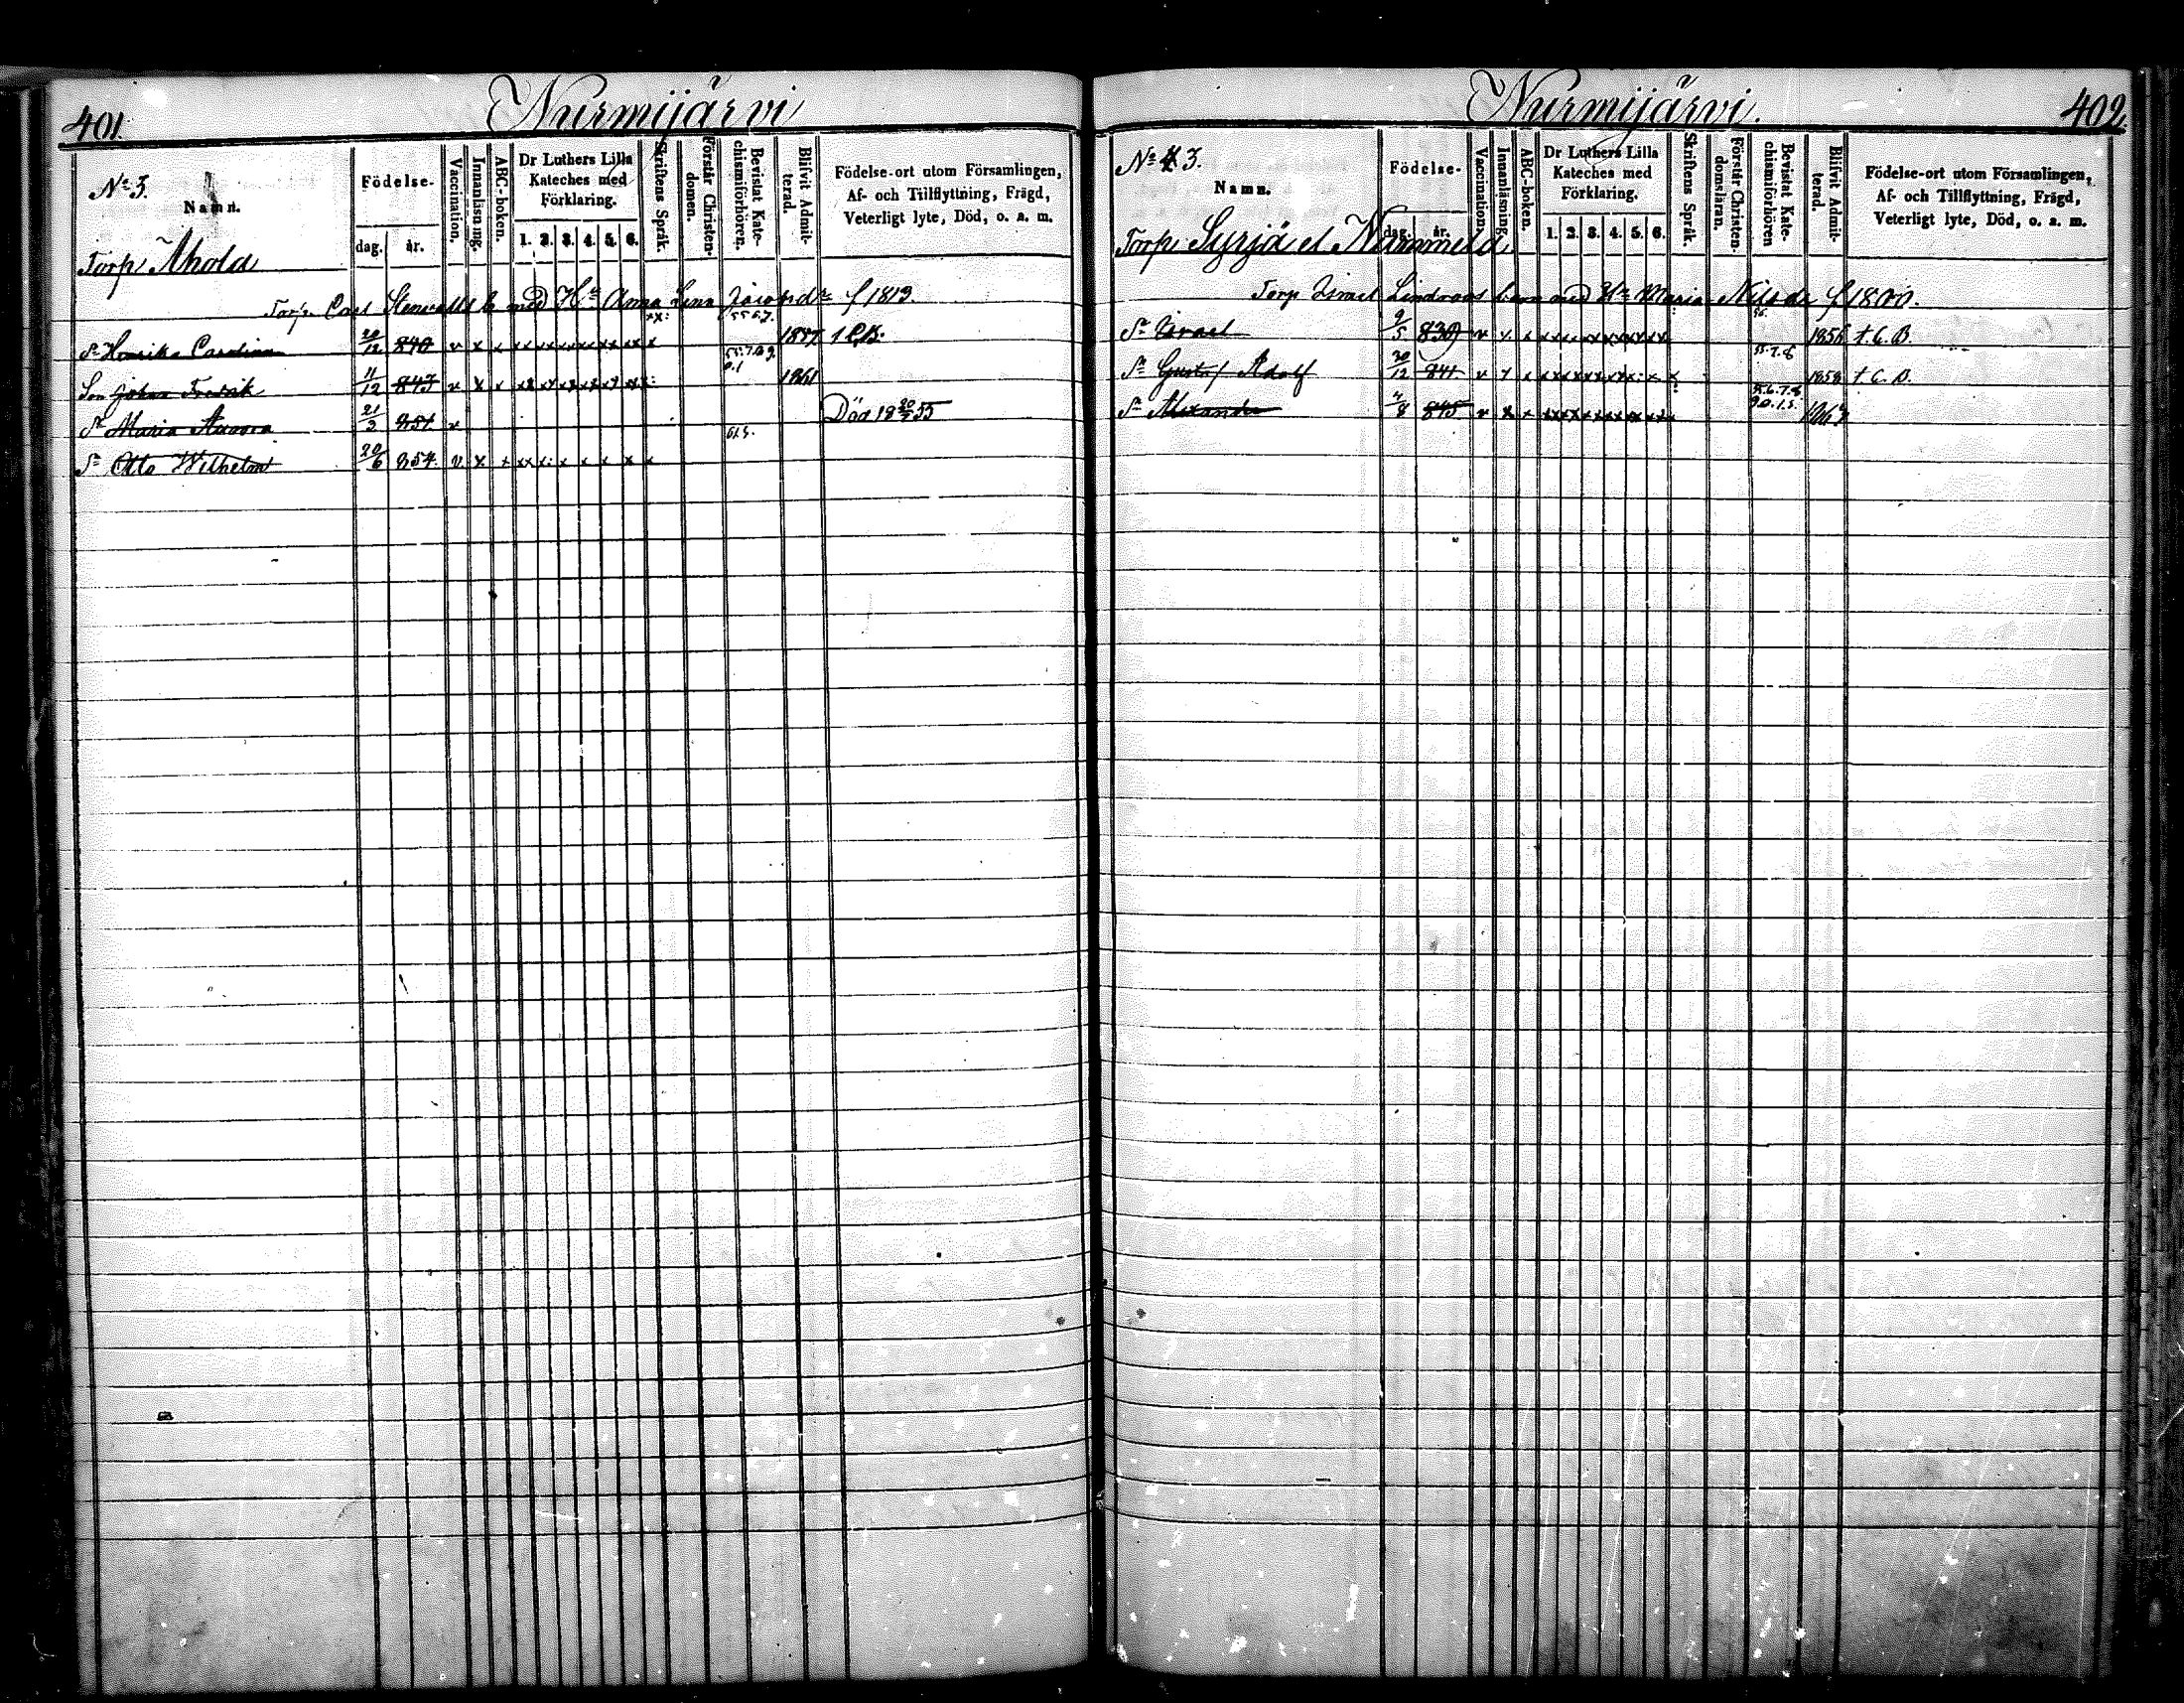 401.
Nurmijärvi
No 3.
Namn.
Födelse-
dag. år.
Vaccination.
Innanläsning.
ABC-boken.
Dr Luthers Lilla
Kateches med
Förklaring.
1. 2. 3. 4. 5. 6.
Skriftens Språk.
Förstår Christen-
domen.
Bevistat Kate-
chismiförhören.
Blifvit Admit-
terad.
Födelse-ort utom Församlingen,
Af- och Tillflyttning, Frägd,
Veterligt lyte, Död, o. a. m.
Torp Ahola
Torp. Carl Stenvalls b. med Hu Anna Lena Jacobsdr f 1813.
Henrika Carolina 20/12 840 v x x 1857 t.C.B.
Son Johan Fredrik 11/12 843 v x x 1861
Maria Aurora 21/3 851 v Död 18 20/5 55
Otto Wilhelm 20/6 854. v. x x
Nurmijärvi.
402.
No 3.
Namn.
Födelse-
dag. år.
Vaccination.
Innanläsning.
ABC-boken.
Dr Luthers Lilla
Kateches med
Förklaring.
1. 2. 3. 4. 5. 6.
Skriftens Språk.
Förstår Christen-
domsläran.
Bevistat Kate-
chismiförhören
Blifvit Admit-
terad.
Födelse-ort utom Församlingen,
Af- och Tillflyttning, Frägd,
Veterligt lyte, Död, o. a. m.
Torp Syrjä el
Torp Israel Lindroos barn med Hu Maria Nilsdr f 1800.
Israel 9/5 839 v x x 56. 1856 t.C.B.
Gustaf Adolf 20/12 841 v x x 55.7.8 1858 t.C.B.
Alexander 4/8 845 v x x